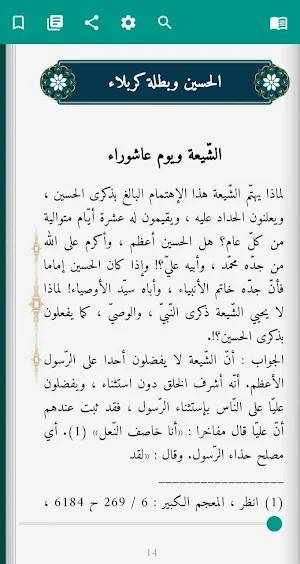 الحسين وبطلة كربلاء
الشّيعة ويوم عاشوراء
لماذا يهتمّ الشّيعة هذا الإهتمام البالغ بذكرى الحسين ،
ويعلنون الحداد عليه ، ويقيمون له عشرة أيّام متوالية
من كلّ عام؟ هل الحسين أعظم ، وأكرم على الله
من جدّه محمّد ، وأبيه عليّ؟! وإذا كان الحسين إماما
فأنّ جدّه خاتم الأنبياء ، وأباه سيّد الأوصياء! لماذا
لا يحيي الشّيعة ذكرى النّبيّ ، والوصيّ ، كما يفعلون
بذكرى الحسين؟!.
الجواب : أنّ الشّيعة لا يفضلون أحدا على الرّسول
الأعظم. أنّه أشرف الخلق دون استثناء ، ويفضلون
عليّا على النّاس بإستثناء الرّسول ، فقد ثبت عندهم
أنّ عليّا قال مفاخرا : «أنا خاصف النّعل» (1). أي
مصلح حذاء الرّسول. وقال : «لقد
(1) انظر ، المعجم الكبير : 6 / 269 ح 6184 ،
14